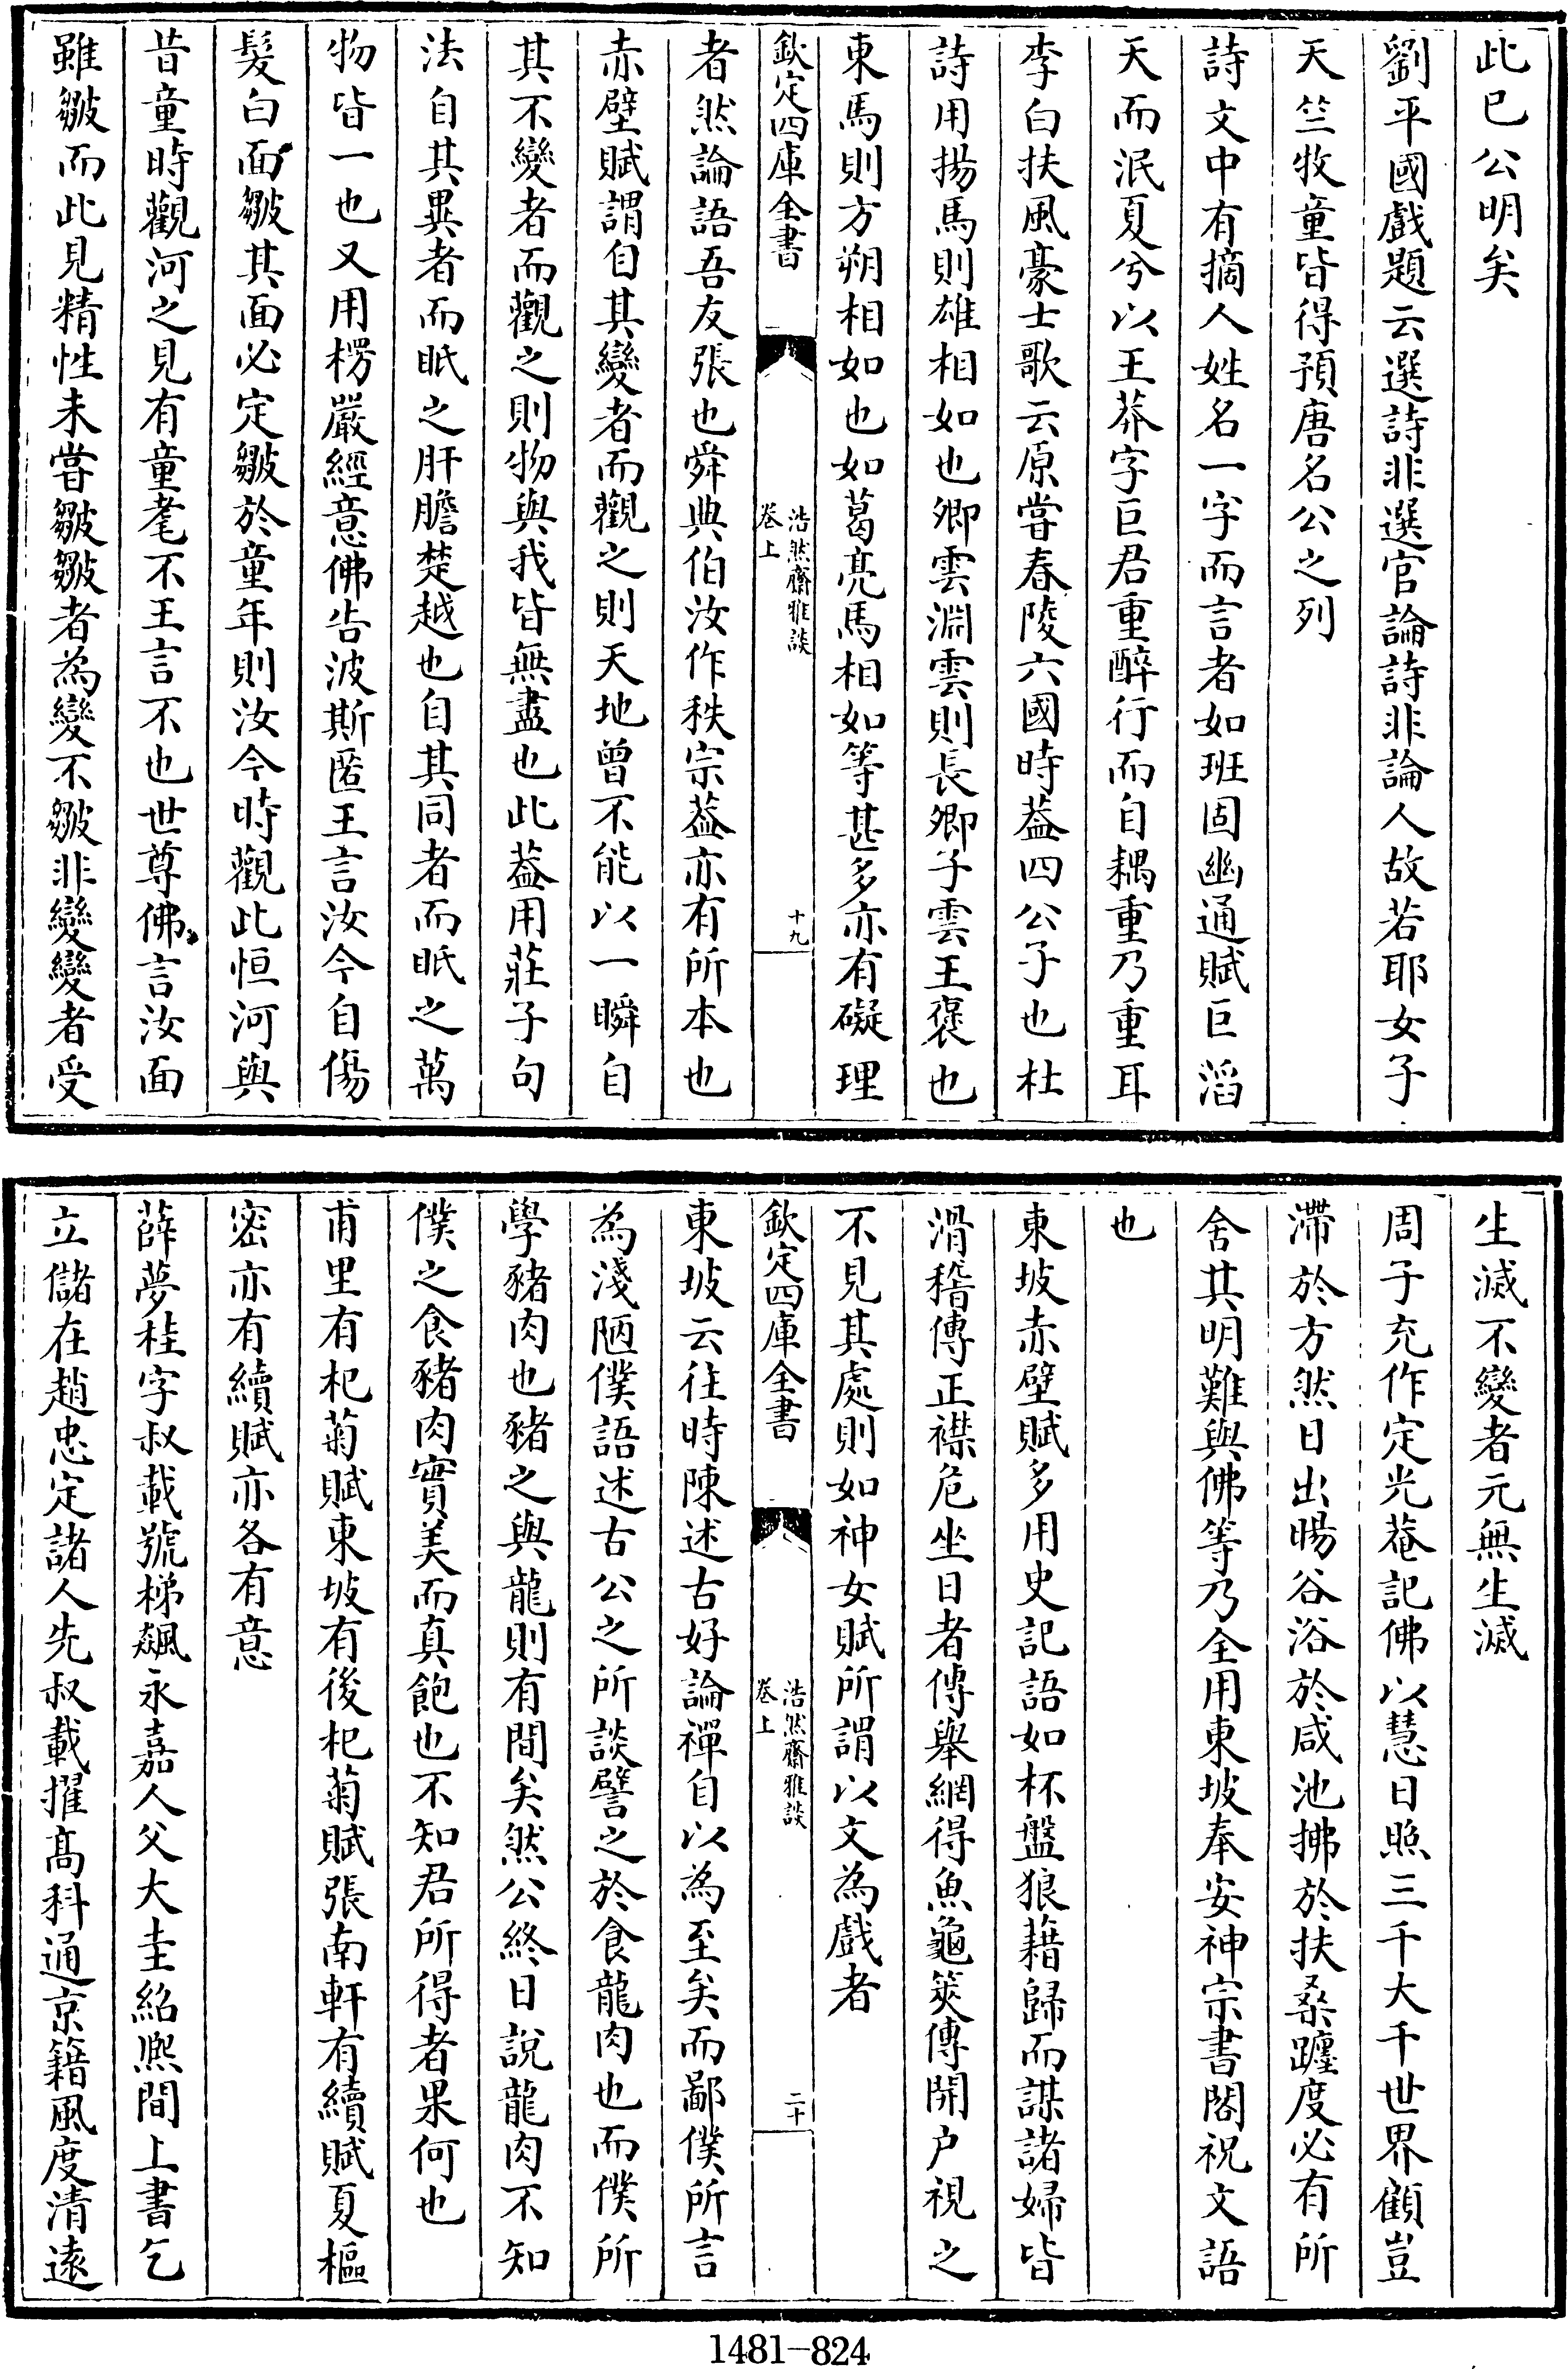 此已公明矣
劉平國戲題云選詩非選官論詩非論人故若耶女子
天竺牧童皆得預唐名公之列
詩文中有摘人姓名一字而言者如班固幽通賦巨滔
天而泯夏兮以王莽字巨君重醉行而自耦重乃重耳
李白扶風豪士歌云原嘗春陵六國時葢四公子也杜
詩用揚馬則雄相如也卿雲淵雲則長卿子雲王褒也
東馬則方朔相如也如葛亮馬相如等甚多亦有礙理
欽定四庫全書
浩然齋雅談
卷上
十九
者然論語吾友張也舜典伯汝作秩宗葢亦有所本也
赤壁賦謂自其變者而觀之則天地曾不能以一瞬自
其不變者而觀之則物與我皆無盡也此葢用莊子句
法自其異者而眂之肝膽楚越也自其同者而眂之萬
物皆一也又用楞嚴經意佛告波斯匿王言汝今自傷
髮白面皺其面必定皺於童年則汝今時觀此恒河與
昔童時觀河之見有童耄不王言不也世尊佛言汝面
雖皺而此見精性未嘗皺皺者為變不皺非變變者受
生滅不變者元無生滅
周子充作定光菴記佛以慧日照三千大千世界顧豈
滯於方然日出暘谷浴於咸池拂於扶桑躔度必有所
舍其明難與佛等乃全用東坡奉安神宗書閣祝文語
也
東坡赤壁賦多用史記語如杯盤狼藉歸而謀諸婦皆
滑稽傳正襟危坐日者傳舉網得魚龜筴傳開户視之
不見其處則如神女賦所謂以文為戲者
欽定四庫全書
浩然齋雅談
卷上
二十
東坡云往時陳述古好論禪自以為至矣而鄙僕所言
為淺陋僕語述古公之所談譬之於食龍肉也而僕所
學豬肉也豬之與龍則有間矣然公終日說龍肉不知
僕之食豬肉實美而真飽也不知君所得者果何也
甫里有杞菊賦東坡有後杞菊賦張南軒有續賦夏樞
密亦有續賦亦各有意
薛夢桂字叔載號梯飆永嘉人父大圭紹熙間上書乞
立儲在趙忠定諸人先叔載擢髙科通京籍風度清遠
1481-824